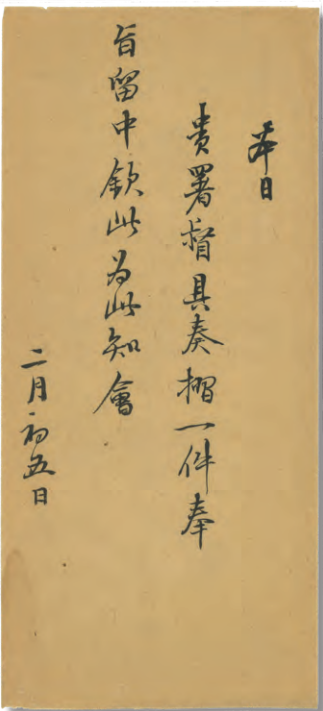 本日
貴署督具奏摺一件奉
旨留中欽此為此知會
二月初五日